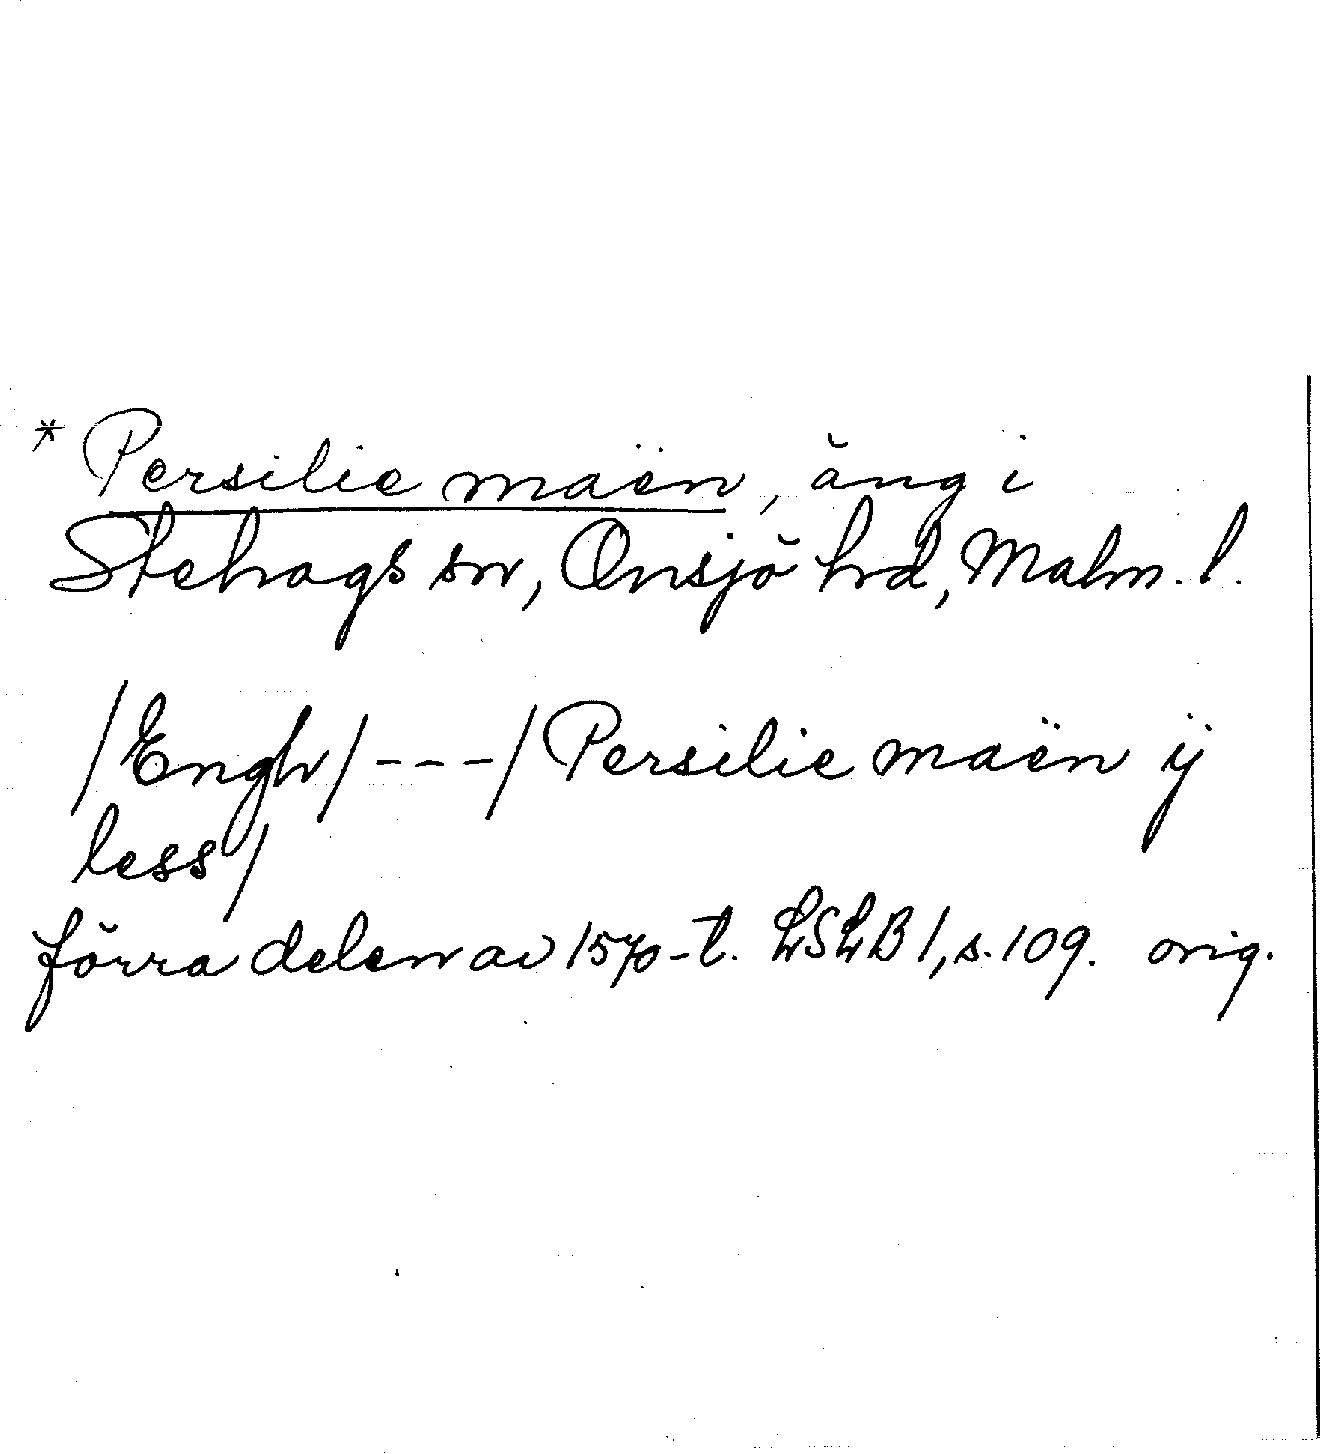 * Persilie maën, äng i
Stehags sn, Onsjö hd, Malm. l.
/Engh/ - - - / Persilie maën ij
less/
förra delen av 1570-t. LSLB 1, s. 109. orig.